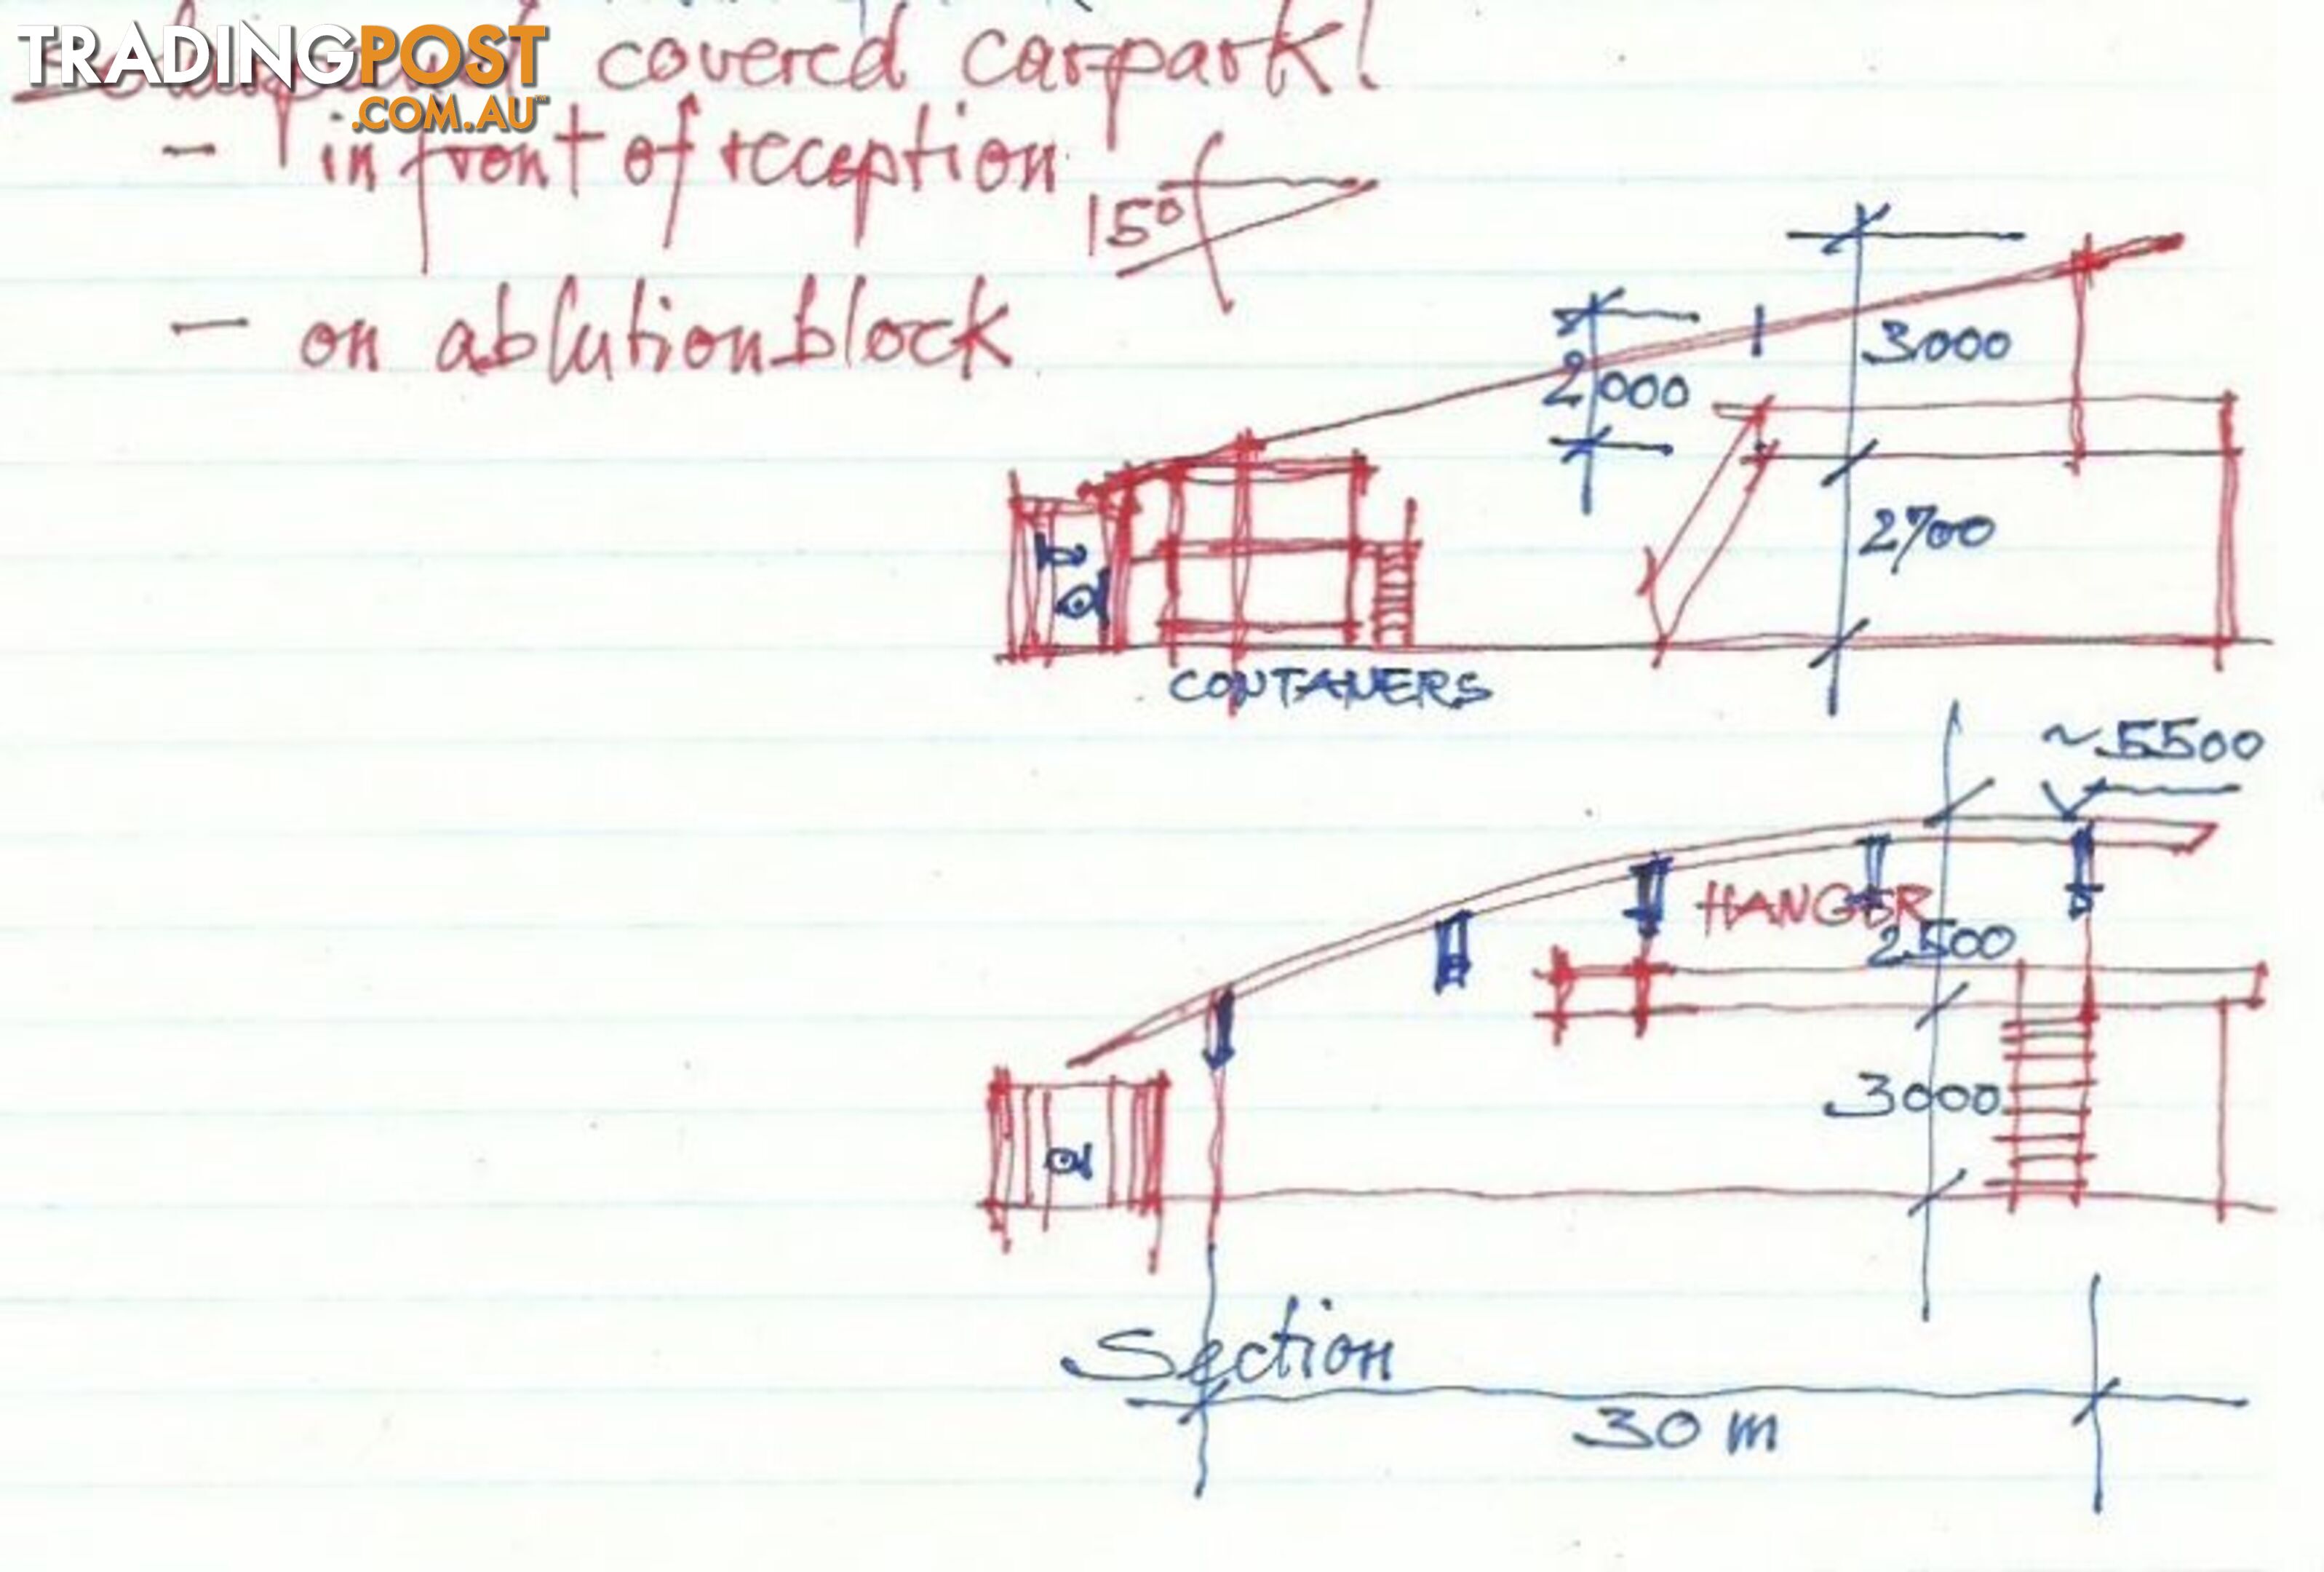 TRADINGPOST
.COM.AU™
covered carpark!
- in front of reception
15°
- on ablution block
3000
2000
2700
CONTANERS
~5500
HANGER
2500
3000
Section
30 m